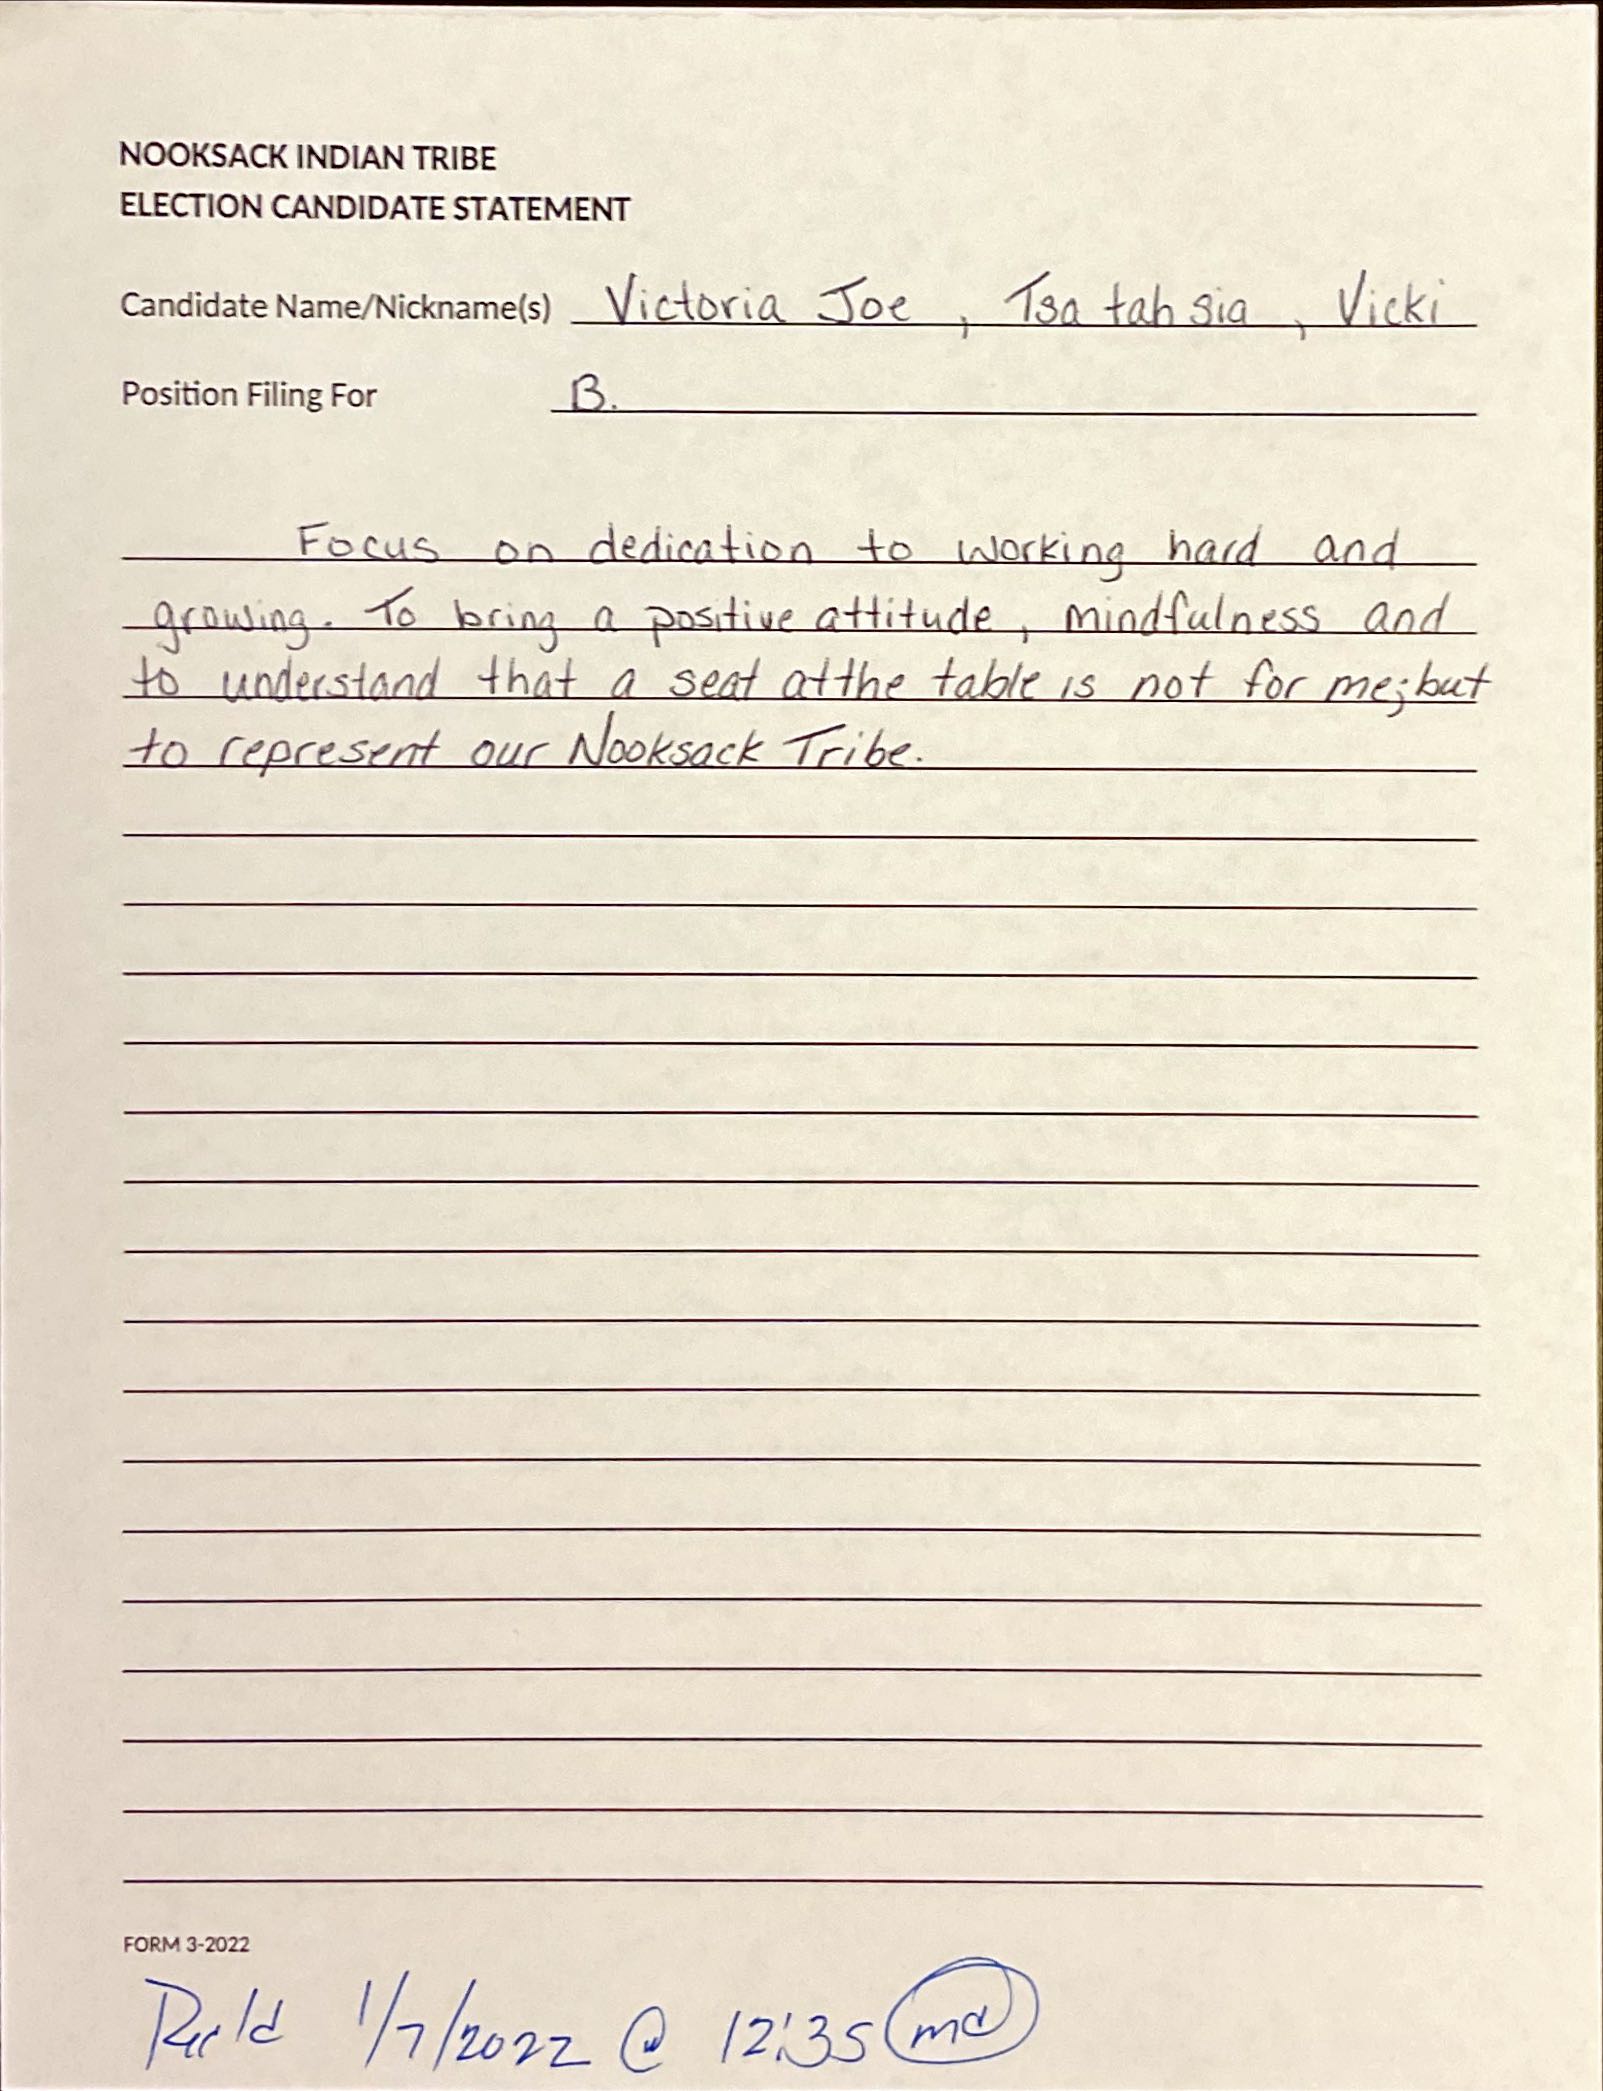 NOOKSACK INDIAN TRIBE
ELECTION CANDIDATE STATEMENT
Candidate Name/Nickname(s) Victoria Joe, Tsa tah sia, Vicki
Position Filing For B.
Focus on dedication to working hard and
growing. To bring a positive attitude, mindfulness and
to understand that a seat at the table is not for me; but
to represent our Nooksack Tribe.
FORM 3-2022
Rec'd 1/7/2022 @ 12:35 md